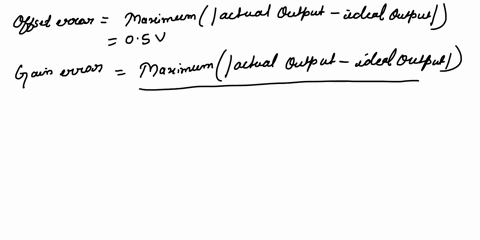 Offset error = Maximum(|actual Output - ideal Output|)
= 0.5 V
Gain error = Maximum(|actual Output - ideal Output|)